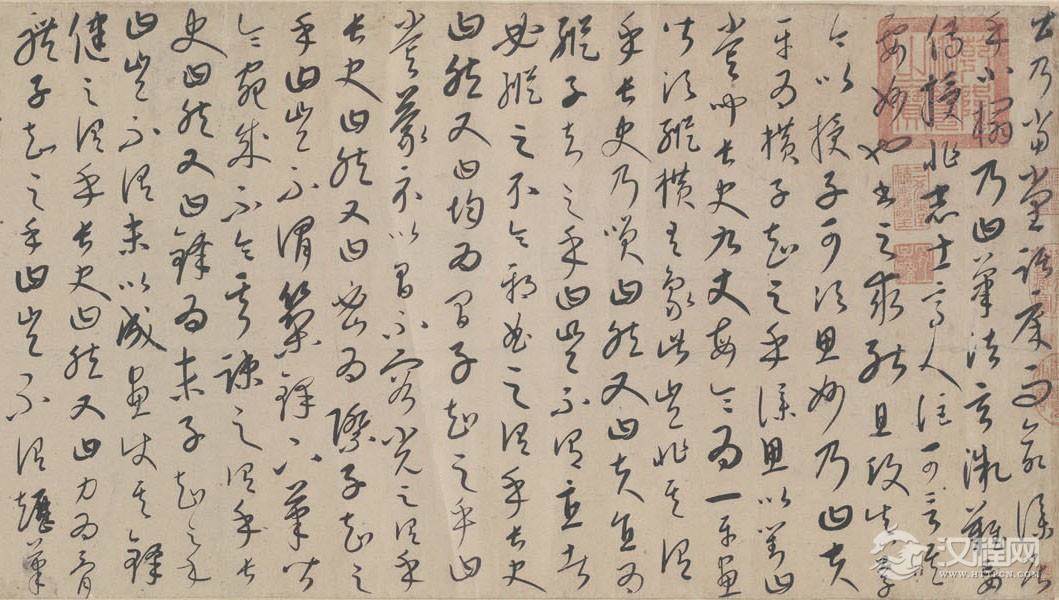 出乃當堂踞床而命僕居
乎小榻乃曰筆法玄微難妄
傳授非志士高人詎可言其
要妙也書之求能且攻真草
今以授子可須思妙乃曰夫
平為橫子知之乎僕思以對曰
嘗聞長史九丈每令為一平畫
皆須縱橫有象此豈非其謂
乎長史乃笑曰然又曰夫直為
縱子知之乎曰豈不謂直者
必縱之不令邪曲之謂乎長史
曰然又曰均為間子知之乎曰
嘗蒙示以間不容光之謂乎
長史曰然又曰密為際子知之
乎曰豈不謂築鋒下筆皆
令宛成不令其疎之謂乎長
史曰然又曰鋒為末子知之乎
曰豈不謂末以成畫使其鋒
健之謂乎長史曰然又曰力為骨
體子知之乎曰豈不謂趯筆
汉程网
WWW.HTTPCN.COM